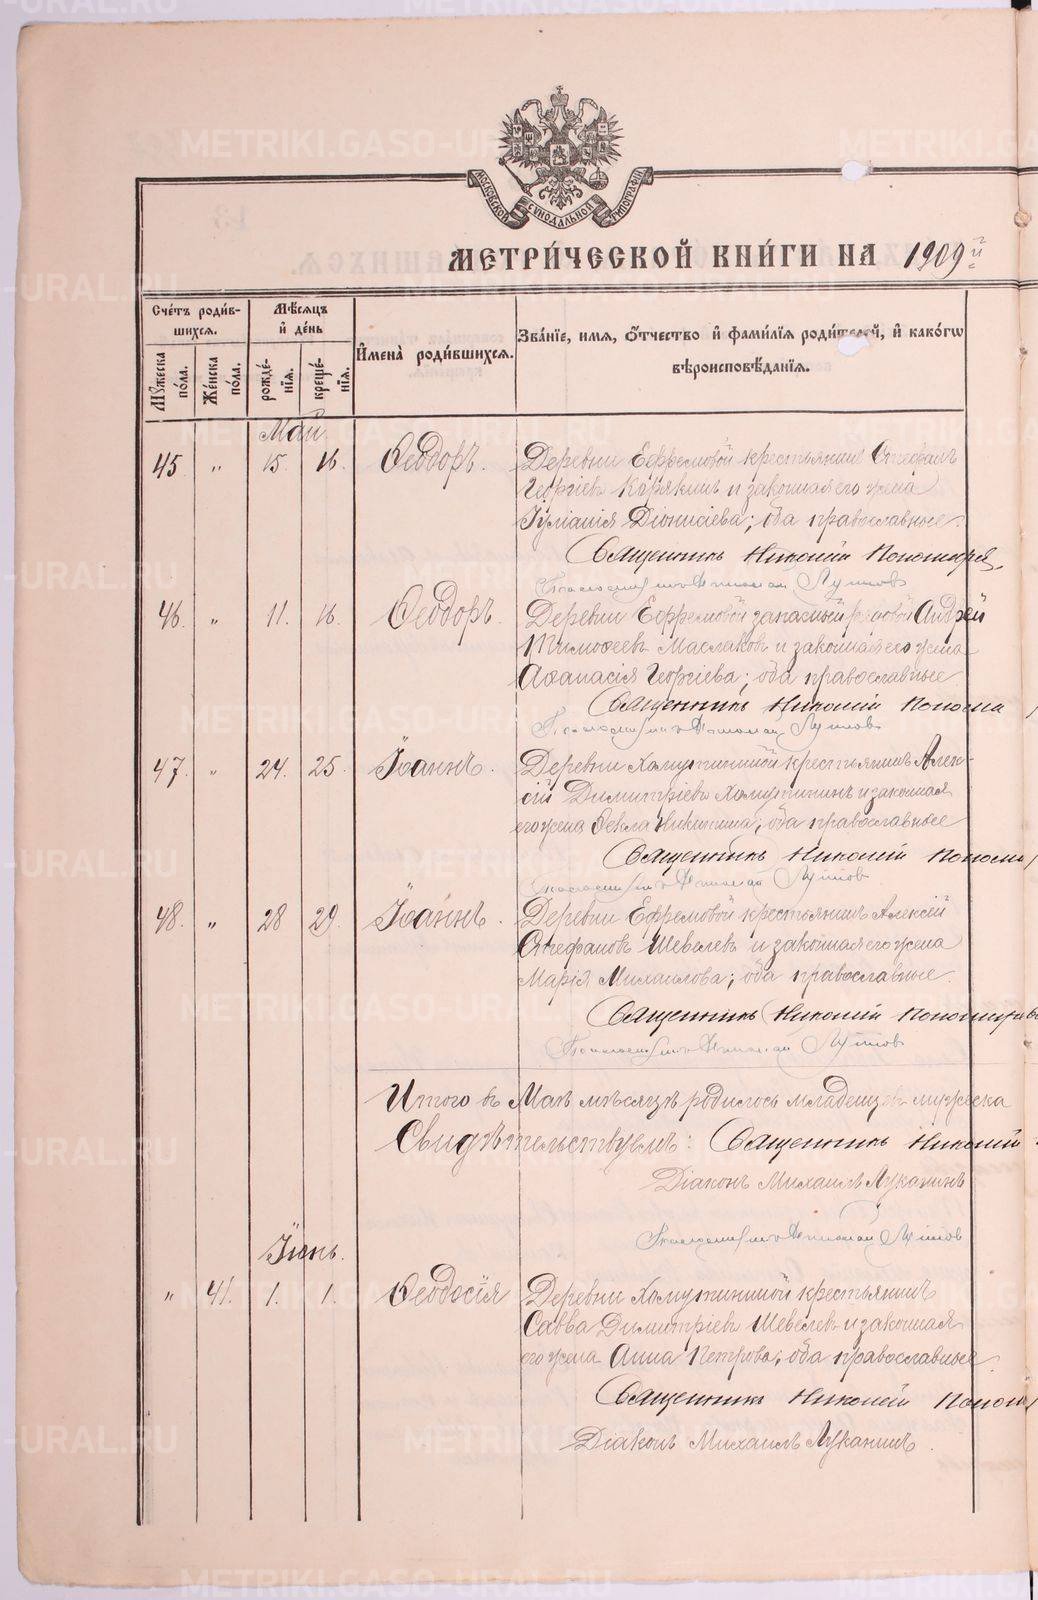 МОСКОВСКОЙ СѴНОДАЛЬНОЙ ТИПОГРАФІИ
МЕТРИ́ЧЕСКОЙ КНИ́ГИ НА 1909й
Сче́тъ роди́в-
шихся.
Мѣ́сяцъ
и҆ де́нь
И҆мена̀ роди́вшихся.
Зва́нїе, имя, о҆́тчество и҆ фами́лїя роди́телей, и҆ како́гѡ
вѣроисповѣ́данїя.
Мꙋ́жеска
по́ла.
Же́нска
по́ла.
рожде́-
нїя.
креще́-
нїя.
Май
45. „ 15. 16. Ѳеодоръ. Деревни Ефремовой крестьянинъ Стефанъ
Георгіевъ Корякинъ и законная его жена
Іуліанія Діонисіева; оба православные.
Священникъ Николай Пономарев
Псаломщикъ Діаконъ
46. „ 11. 16. Ѳеодоръ. Деревни Ефремовой запасный рядовой Андрей
Тимоѳеевъ Маслаковъ и законная его жена
Аѳанасія Георгіева; оба православные
Священникъ Николай Понома
Псаломщикъ Діаконъ
47. „ 24. 25. Іоаннъ. Деревни Хомутининой крестьянинъ Алек-
сій Димитріевъ Хомутининъ и законная
его жена Ѳекла Никитина; оба православные
Священникъ Николай Поном
Псаломщикъ Діаконъ
48. „ 28 29. Іоаннъ. Деревни Ефремовой крестьянинъ Алексій
Стефановъ Шевелевъ и законная его жена
Марія Михаилова; оба православные.
Священникъ Николай Пономарев
Псаломщикъ Діаконъ
Итого въ Маѣ мѣсяцѣ родилось младенцевъ мужеска
Свидѣтельствуемъ: Священникъ Николай
Діаконъ Михаилъ Луканинъ
Псаломщикъ Діаконъ
Іюнь.
„ 41. 1. 1. Ѳеодосія Деревни Хомутининой крестьянинъ
Савва Димитріевъ Шевелевъ и законная
его жена Анна Петрова; оба православные.
Священникъ Николай Поном
Діаконъ Михаилъ Луканинъ.
METRIKI.GASO-URAL.RU